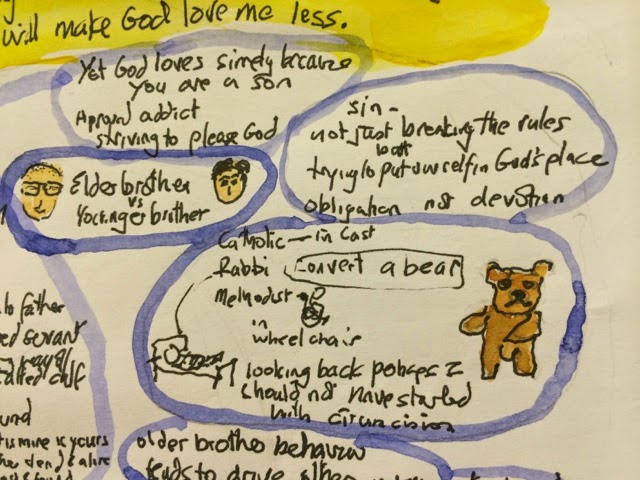 will make God love me less.
Yet God loves simply because
you are a son
Aproval addict
striving to please God
sin -
not just breaking the rules
but
trying to put ourself in God's place
obligation not devotion
Elder brother
vs
Younger brother
Catholic — in cast
Rabbi convert a bear
Methodist -
in
wheel chair
looking back perhaps I
should not have started
with circumcision
to father
servant
calf
is mine is yours
dead & alive
older brother behaviour
tends to drive other